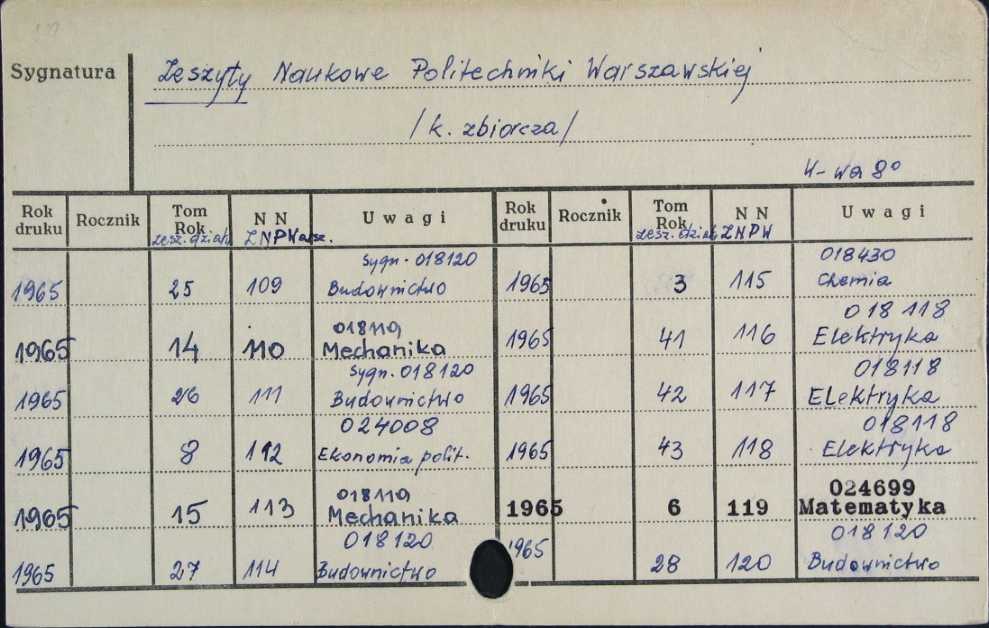 Sygnatura Zeszyty Naukowe Politechniki Warszawskiej
/k. zbiorcza/
W-wa 8°
Rok druku Rocznik Tom Rok zesz. dział. N N ZNPWarsz. Uwagi Rok druku Rocznik Tom Rok zesz. dział. N N ZNPW Uwagi
1965 25 109 Sygn. 018120 Budownictwo 1965 3 115 018430 Chemia
1965 14 110 018119 Mechanika 1965 41 116 018118 Elektryka
1965 26 111 Sygn. 018120 Budownictwo 1965 42 117 018118 Elektryka
1965 8 112 024008 Ekonomia polit. 1965 43 118 018118 Elektryka
1965 15 113 018119 Mechanika 1965 6 119 024699 Matematyka
1965 27 114 018120 Budownictwo 1965 28 120 018120 Budownictwo